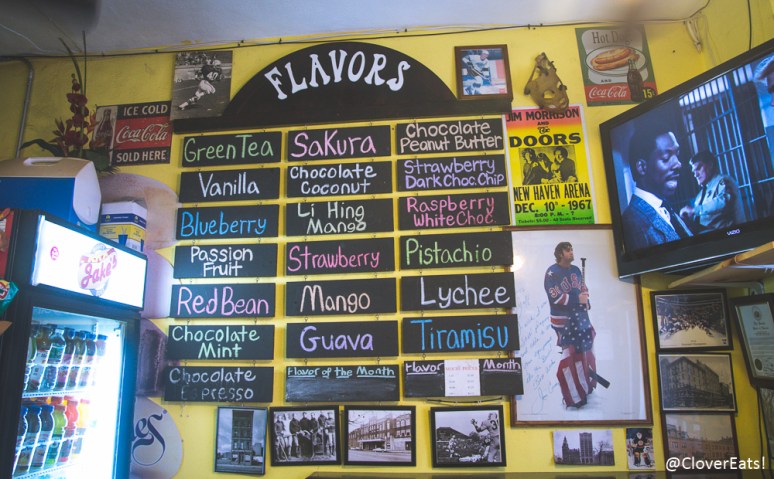 FLAVORS
Green Tea
Vanilla
Blueberry
Passion
Fruit
Red Bean
Chocolate
Mint
Chocolate
Espresso
Sakura
Chocolate
Coconut
Li Hing
Mango
Strawberry
Mango
Guava
Flavor of the Month
Chocolate
Peanut Butter
Strawberry
Dark Choc. Chip
Raspberry
White Choc.
Pistachio
Lychee
Tiramisu
Flavor
Month
ICE COLD
Coca-Cola
SOLD HERE
40
Hot Dog
Coca-Cola
15¢
JIM MORRISON
And The
DOORS
NEW HAVEN ARENA
DEC. 10th - 1967
8:00 P. M.
VIZIO
Jake's
@CloverEats!